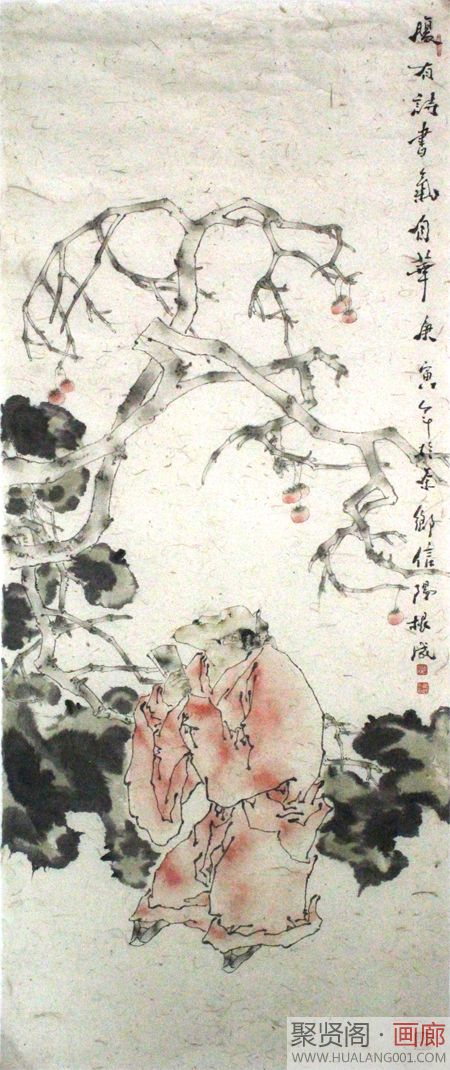 腹有詩書氣自華庚寅年於茶鄉信陽根成
聚贤阁·画廊
WWW.HUALANG001.COM